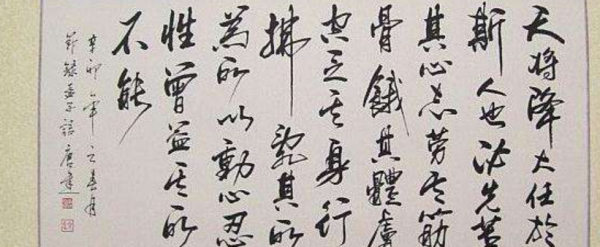 天将降大任於
斯人也必先苦
其心志劳其筋
骨餓其體膚
空乏其身行
拂亂其所
為所以動心忍
性曾益其所
不能
辛卯年之春月
節録孟子語